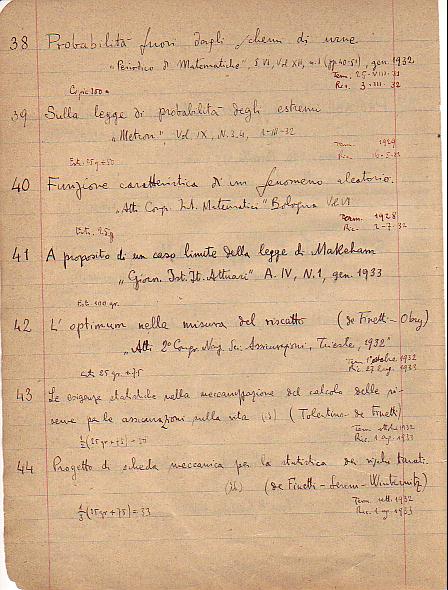 38 Probabilità fuori dagli schemi di urne
"Periodico di Matematiche", S. VI, Vol XII, n. 1 (pp. 40-51), gen. 1932
Term. 25-VIII-31
Ric. 3-III-32
Copie 150
39 Sulla legge di probabilità degli estremi
"Metron", Vol. IX, N. 3-4, 1-III-32
Term. 1929
Ric.
Estr. 25g + 50
40 Funzione caratteristica di un fenomeno aleatorio.
"Atti Congr. Int. Matematici" Bologna Vol. VI
Term. 1928
Ric. 2-7-32
Estr. 25g
41 A proposito di un caso limite della legge di Makeham
"Giorn. Ist. It. Attuari" A. IV, N. 1, gen. 1933
Est 100 gr.
42 L'optimum nella misura del riscatto (de Finetti - Obry)
"Atti 2° Congr. Naz. Sci. Assicurazioni, Trieste, 1932"
Term. ottobre 1932
Ric. 1933
estr. 25 gr. + 75
43 Le esigenze statistiche nella meccanizzazione del calcolo delle ri-
serve per le assicurazioni sulla vita (Tolentino - de Finetti)
Term. ottobre 1932
Ric. 1 1933
½ (25 gr + 75) = 50
44 Progetto di scheda meccanica per la statistica dei rischi tarati.
(de Finetti - Winternitz)
Term. sett. 1932
Ric. 1 1933
⅓ (25 gr + 75) = 33